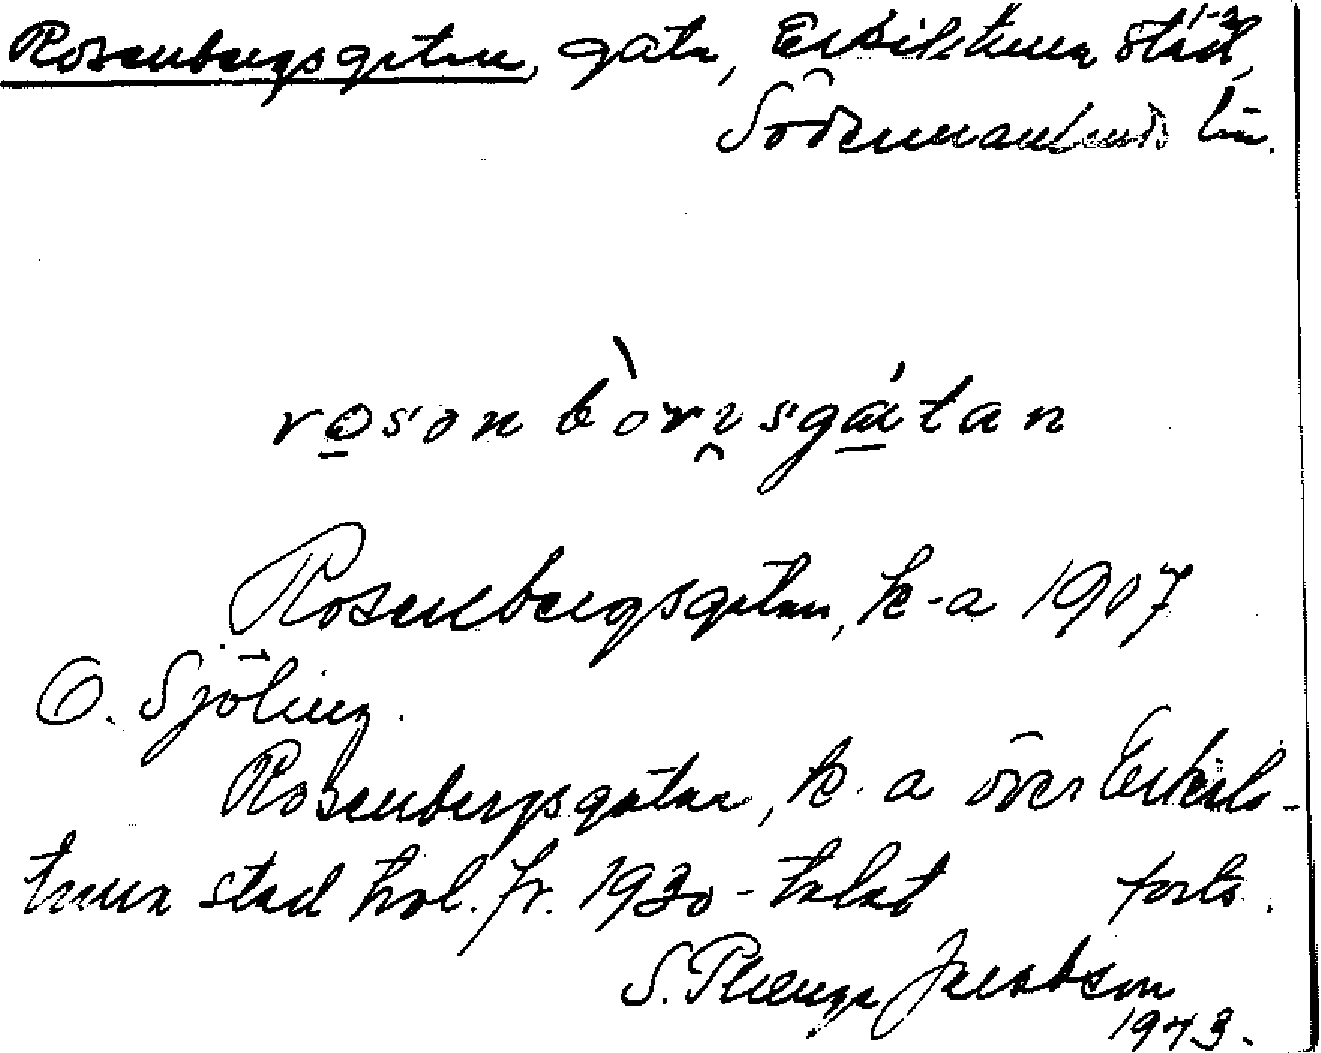 Rosenbergsgatan, gata, Eskilstuna stad, 1-2
Södermanlands län.
rosənbòrɪsgátan
Rosenbergsgatan, k-a 1907
O. Sjöling.
Rosenbergsgatan, k-a över Eskils-
tuna stad trol. fr. 1930-talet forts.
S. Plenge Jacobson
1943.